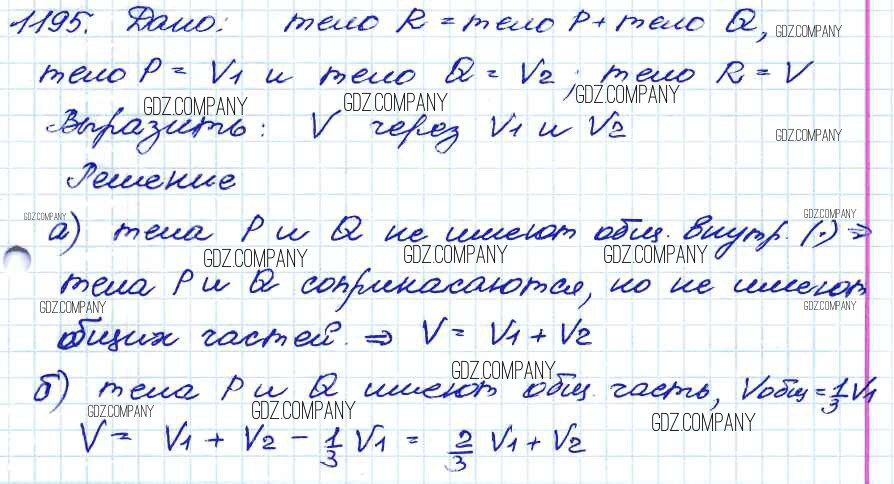 1195. Дано: тело R = тело P + тело Q, GDZ.COMPANY
тело P = V1 и тело Q = V2 ; тело R = V
GDZ.COMPANY GDZ.COMPANY GDZ.COMPANY
Выразить: V через V1 и V2 GDZ.COMPANY
Решение
GDZ.COMPANY GDZ.COMPANY
а) тела P и Q не имеют общ. внутр. (·) ⇒
GDZ.COMPANY GDZ.COMPANY GDZ.COMPANY
тела P и Q соприкасаются, но не имеют
GDZ.COMPANY GDZ.COMPANY
общих частей. ⇒ V = V1 + V2
GDZ.COMPANY
б) тела P и Q имеют общ. часть, Vобщ = 1/3 V1
GDZ.COMPANY GDZ.COMPANY GDZ.COMPANY
V = V1 + V2 - 1/3 V1 = 2/3 V1 + V2